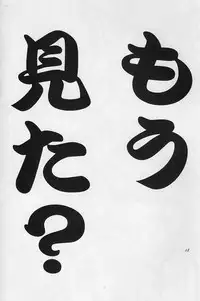 もう
見た?